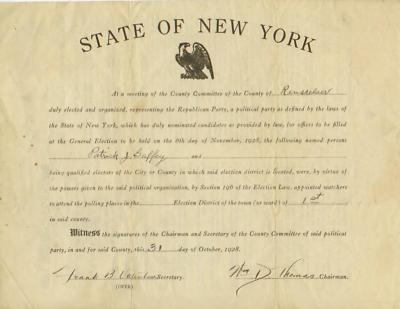 STATE OF NEW YORK
At a meeting of the County Committee of the County of Rensselaer
duly elected and organized, representing the Republican Party, a political party as defined by the laws of
the State of New York, which has duly nominated candidates as provided by law, for offices to be filled
at the General Election to be held on the 6th day of November, 1928, the following named persons
Patrick J. Gaffey and
being qualified electors of the City or County in which said election district is located, were, by virtue of
the powers given to the said political organization, by Section 196 of the Election Law, appointed watchers
to attend the polling places in the Election District of the town (or ward) of 1st
in said county.
Witness the signatures of the Chairman and Secretary of the County Committee of said political
party, in and for said County, this 31 day of October, 1928.
Frank B. Secretary. Wm D. Thomas Chairman.
(OVER)